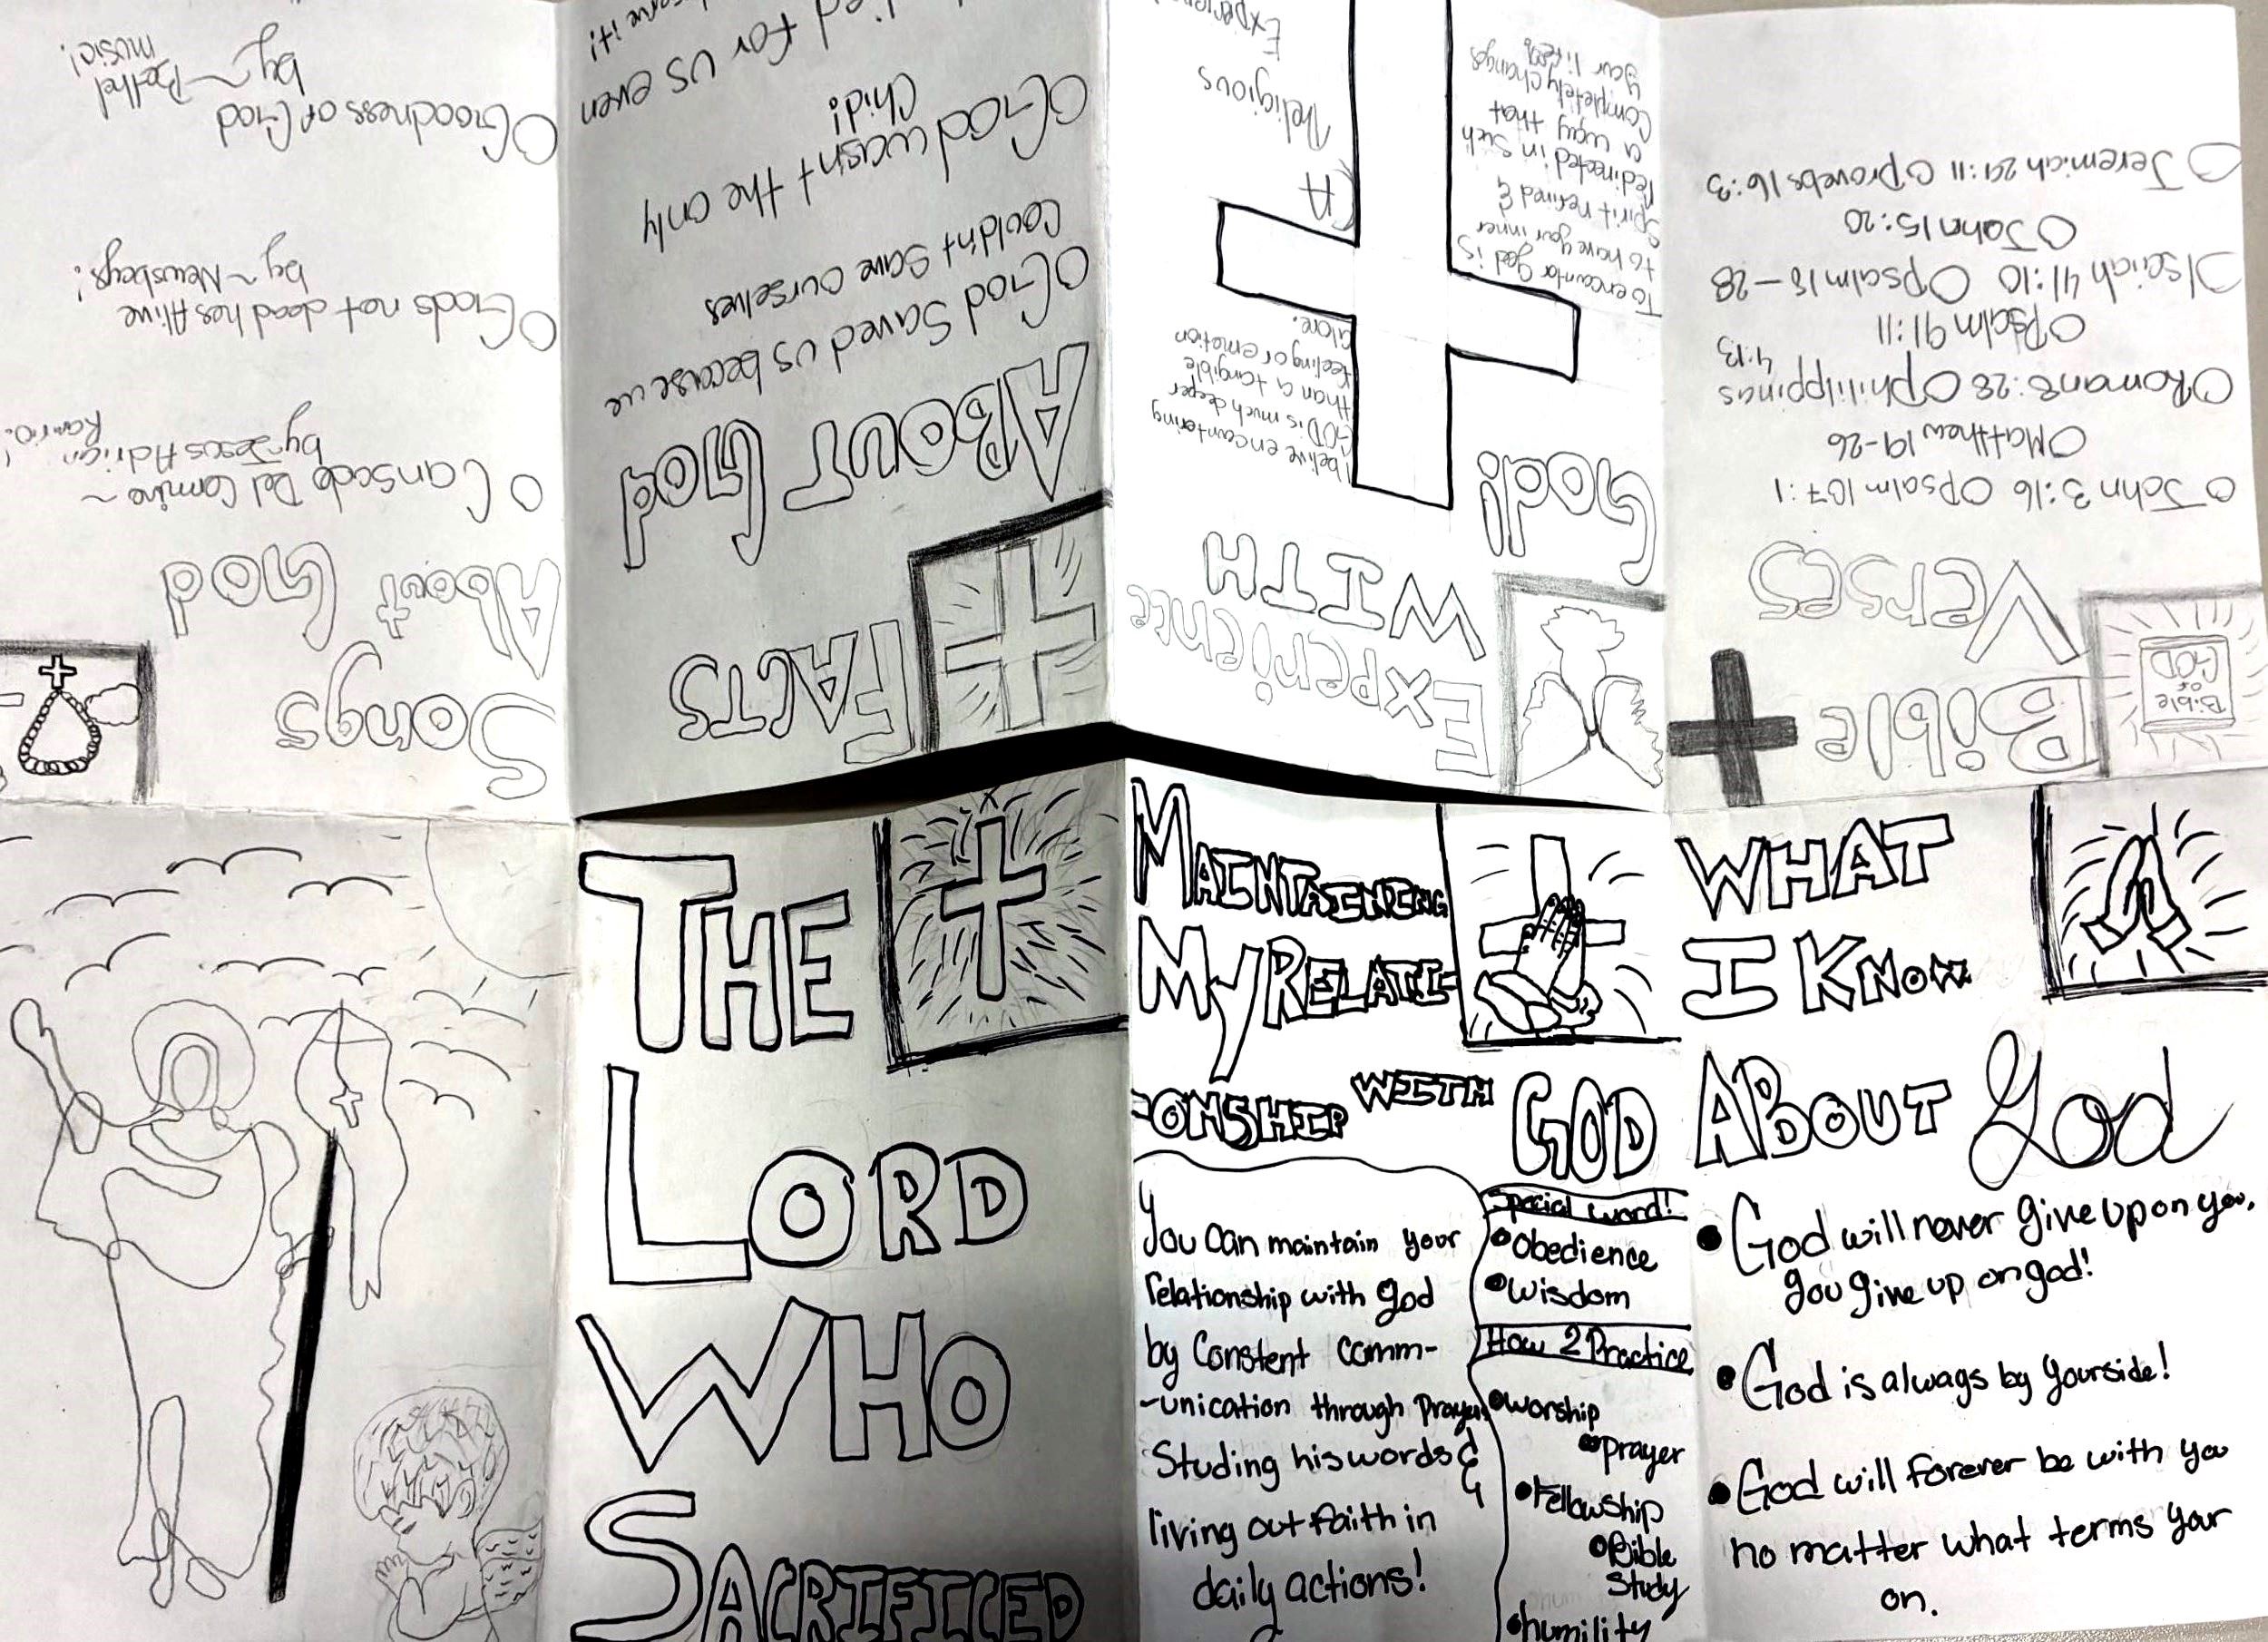 THE
LORD
WHO
SACRIFICED
MAINTAINING
MY RELATI-
-ONSHIP WITH GOD
You can maintain your
relationship with god
by Constent comm-
-unication through prayer,
Studing his words &
living out faith in
daily actions!
Special word!
Obedience
Wisdom
How 2 Practice
Worship
prayer
Fellowship
Bible
Study
humility
WHAT
I KNOW
ABOUT God
God will never give up on you,
you give up on god!
God is always by yourside!
God will forever be with you
no matter what terms your
on.
Bible
Verses
Bible
of
GOD
John 3:16 Psalm 107:1
Matthew 19-26
Roman 8:28 Philippinas
4:13
Psalm 91:11
Isaiah 41:10 Psalm 18-28
John 15:20
Jeremiah 29:11 Proverbs 16:3
Experience
WITH
God!
I belive encountering
GOD is much deeper
than a tangible
feeling or emotion
alone.
To encounter god is
to have your inner
Spirit refined &
redirected in such
a way that
Completely changes
your life
(A
Religious
FACTS
ABOUT God
God Saved us because we
Couldn't Save ourselves
God wasn't the only
Chid!
for us even
Songs
About God
Cansado Del Camino ~
by Jesus Adrian
Gods not dead hes Alive
by ~ Newsboys!
Goodness of God
by ~ Bethel
music!